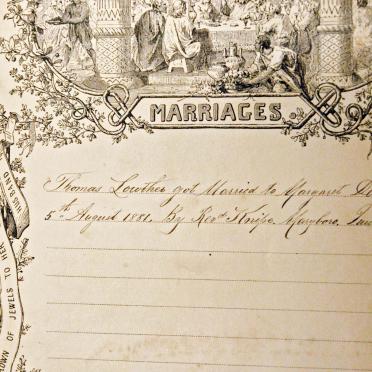 MARRIAGES.
Thomas Lowther got Married to Margaret
5th August 1881. By Revd Knipe, Maryboro,
HUSBAND
OWN OF JEWELS TO HER